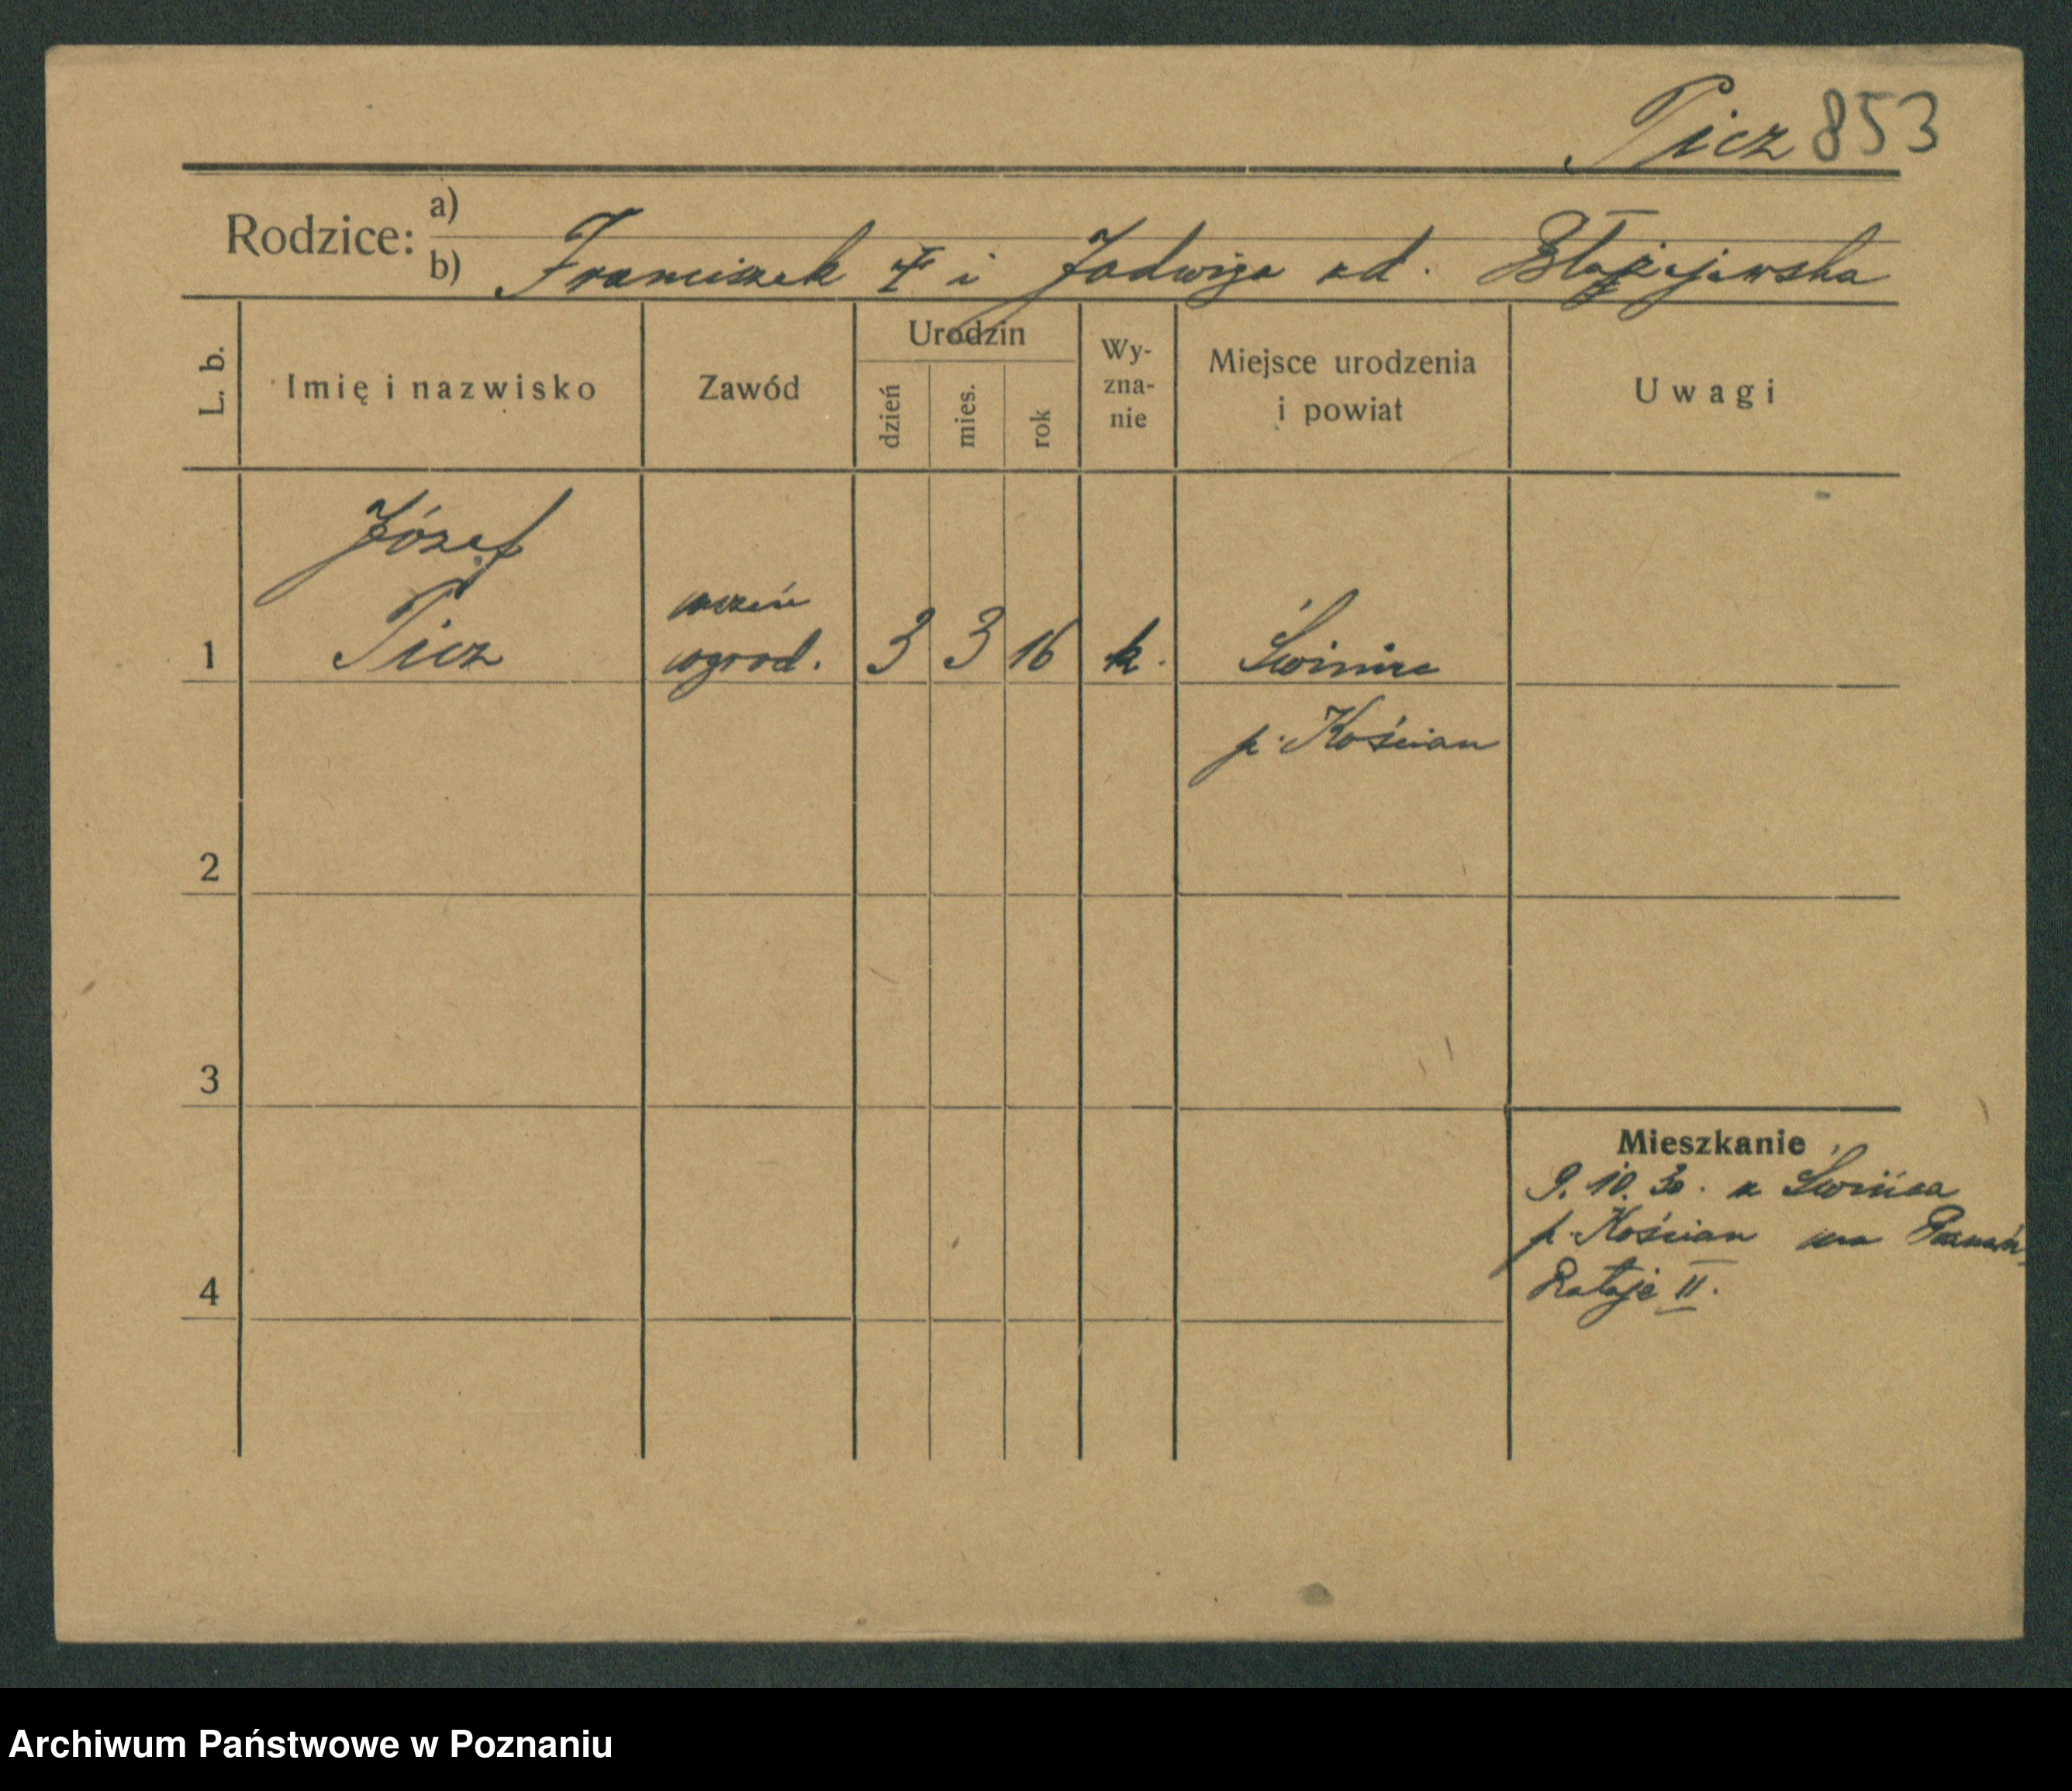 Picz 853
Rodzice: a)
b) Franciszek † i Jadwiga zd. Błażejewska
L. b.
Imię i nazwisko
Zawód
Urodzin
dzień
mies.
rok
Wy-
zna-
nie
Miejsce urodzenia
i powiat
Uwagi
Józef
Picz
uczeń
ogrod.
1
3 3 16 k.
Świniec
p. Kościan
2
3
4
Mieszkanie
9. 10. 30. z Świńca
p. Kościan na Poznań
Rataje II.
Archiwum Państwowe w Poznaniu